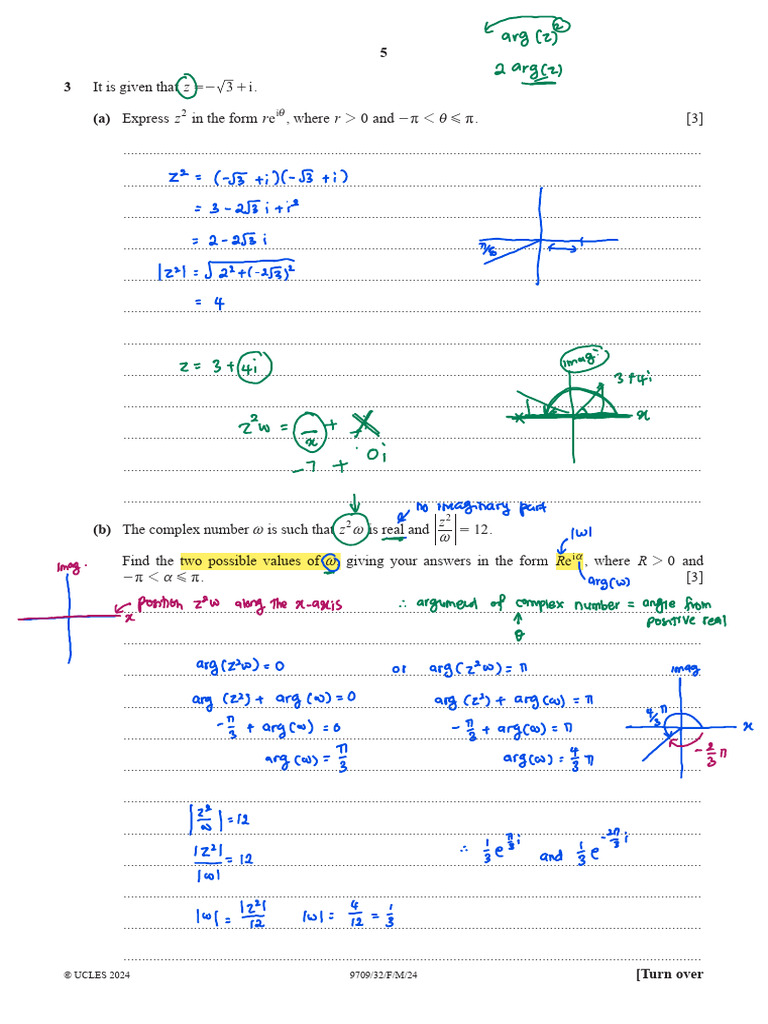 arg (z)²
2 arg(z)
5
3 It is given that z = −√3 + i.
(a) Express z² in the form re^{iθ}, where r > 0 and −π < θ ⩽ π. [3]
z² = (-√3 + i)(-√3 + i)
= 3 - 2√3 i + i²
= 2 - 2√3 i
|z²| = √(2² + (-2√3)²)
= 4
π/6
z = 3 + 4i
imag
3+4i
x
z²w = x +
-7 + 0i
no imaginary part
(b) The complex number ω is such that z²ω is real and |z²/ω| = 12.
|w|
Find the two possible values of ω, giving your answers in the form Re^{iα}, where R > 0 and
−π < α ⩽ π. [3]
arg(w)
imag.
x
position z²w along the x-axis
∴ argument of complex number = angle from
positive real
θ
arg(z²w) = 0 or arg(z²w) = π
arg (z²) + arg (w) = 0 arg (z²) + arg(w) = π
-π/3 + arg(w) = 0 -π/3 + arg(w) = π
arg(w) = π/3 arg(w) = 4/3 π
imag
4/3 π
x
-2/3 π
|z²/w| = 12
|z²|/|w| = 12
∴ 1/3 e^{π/3 i} and 1/3 e^{-2π/3 i}
|w| = |z²|/12 |w| = 4/12 = 1/3
© UCLES 2024 9709/32/F/M/24 [Turn over